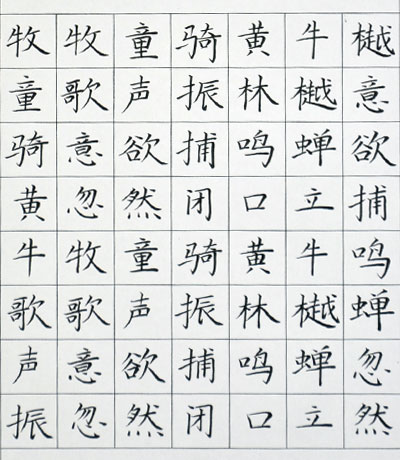 牧牧童骑黄牛樾
童歌声振林樾意
骑意欲捕鸣蝉欲
黄忽然闭口立捕
牛牧童骑黄牛鸣
歌歌声振林樾蝉
声意欲捕鸣蝉忽
振忽然闭口立然